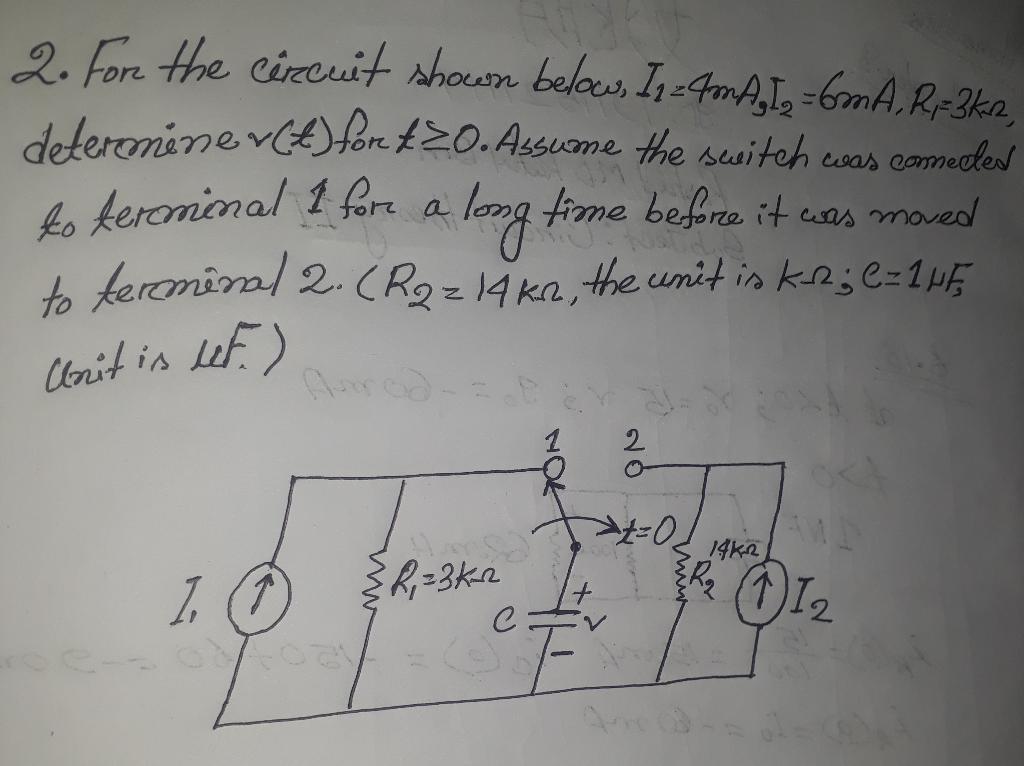 2. For the circuit shown below, I₁=4mA, I₂=6mA, R₁=3kΩ,
determine v(t) for t≥0. Assume the switch was connected
to terminal 1 for a long time before it was moved
to terminal 2. (R₂=14kΩ, the unit is kΩ; C=1μF,
Unit is μF.)
1 2
t=0
I₁
R₁=3kΩ
C
+
v
-
R₂
14kΩ
I₂